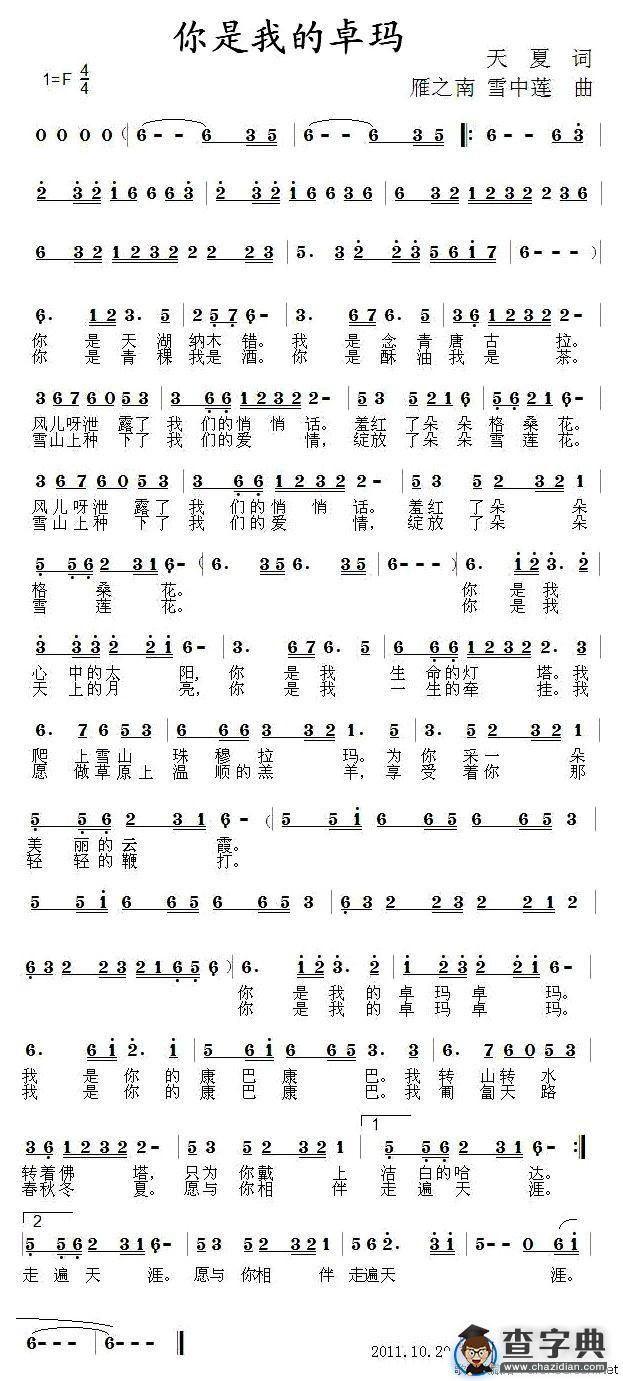 你是我的卓玛
天 夏 词
1=F 4/4
雁之南 雪中莲 曲
0 0 0 0 ( 6 - - 6 3 5 | 6 - - 6 3 5 |: 6 - - 6 3 |
2 3 2 1 6 6 6 3 | 2 3 2 1 6 6 3 6 | 6 3 2 1 2 3 2 2 3 6 |
6 3 2 1 2 3 2 2 2 3 | 5. 3 2 2 3 | 5 6 1 7 | 6 - - - )
6. 1 2 3. 5 | 2 5 7 6 - | 3. 6 7 6. 5 | 3 6 1 2 3 2 2 - |
你 是 天 湖 纳木 错。 我 是 念 青 唐 古 拉。
你 是 青 稞 我是 酒。 你 是 酥 油 我 是 茶。
3 6 7 6 0 5 3 | 3 6 6 1 2 3 2 2 - | 5 3 5 2 1 6 | 5 6 2 1 6 - |
风儿呀泄 露了 我 们的悄 悄话。 羞红 了朵 朵 格 桑 花。
雪山上种 下了 我 们的爱 情, 绽放 了朵 朵 雪 莲 花。
3 6 7 6 0 5 3 | 3 6 6 1 2 3 2 2 - | 5 3 5 2 3 2 1 |
风儿呀泄 露了 我 们的悄 悄话。 羞红 了朵 朵
雪山上种 下了 我 们的爱 情, 绽放 了朵 朵
5 5 6 2 3 1 6 - ( 6. 3 5 6. 3 5 | 6 - - - ) | 6. 1 2 3. 2 |
格 桑 花。 你 是 我
雪 莲 花。 你 是 我
3 3 3 2 2 1 6 - | 3. 6 7 6. 5 | 6 6 6 1 2 3 2 2. 3 |
心 中的太 阳, 你 是 我 生 命的灯 塔。我
天 上的月 亮, 你 是 我 一 生的牵 挂。我
6. 7 6 5 3 | 6 6 6 3 3 2 1. 5 | 3. 5 2 3 2 1 |
爬 上雪山 珠 穆 拉 玛。为 你 采一 朵
愿 做草原上 温 顺的羔 羊,享 受 着你 那
5 5 6 2 3 1 6 - ( 5 5 1 6 6 5 6 6 5 3 |
美 丽的云 霞。
轻 轻的鞭 打。
5 5 1 6 6 5 6 6 5 3 | 6 3 2 2 2 3 2 2 1 2 |
6 3 2 2 3 2 1 6 5 6 ) 6. 1 2 3. 2 | 1 2 3 2 2 5 6 - |
你 是 我 的 卓 玛 卓 玛。
你 是 我 的 卓 玛 卓 玛。
6. 6 1 2. 1 | 5 6 1 6 6 5 3. 3 | 6. 7 6 0 5 3 |
我 是 你 的 康 巴 康 巴。我 转 山转 水
我 是 你 的 康 巴 康 巴。我 匍 匐天 路
3 6 1 2 3 2 2 - | 5 5 3 5 3 2 1 | 1 5 5 6 2 3 1 6 - :|
转着佛 塔, 只为 你戴 上 洁 白的哈 达。
春秋冬 夏。 愿与 你相 伴 走 遍 天 涯。
2
5 5 6 2 3 1 6 - | 5 5 3 5 2 1 | 5 6 2. 3 1 | 5 - - 6 1 |
走 遍 天 涯。愿与 你相 伴 走遍天 涯。
6 - - - | 6 - - - ‖
2011.10.2
查字典
www.chazidian.com